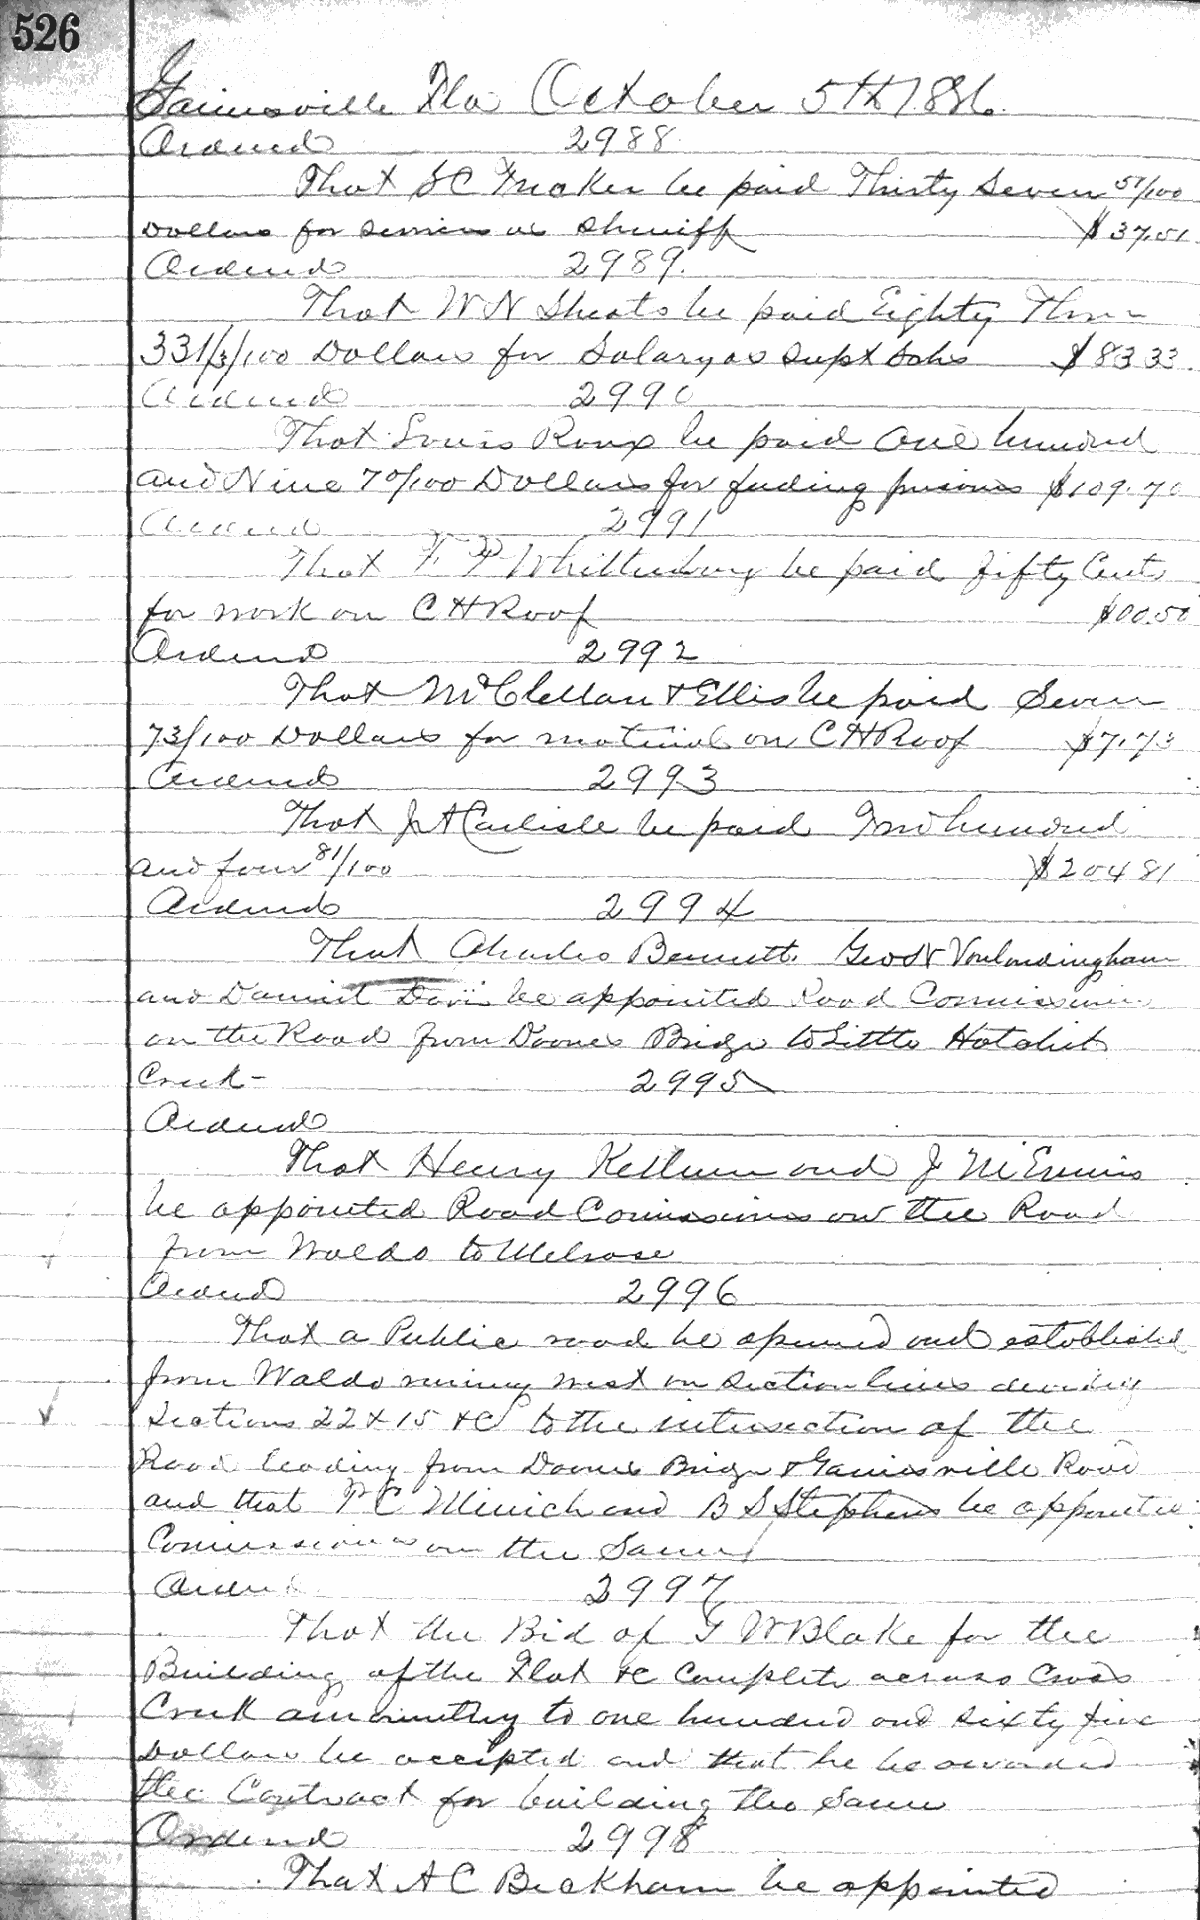 526
Gainesville Fla October 5th 1886.
Ordered 2988
That S C Tucker be paid Thirty Seven 51/100
Dollars for services as Sheriff $37.51
Ordered 2989.
That W N Sheats be paid Eighty Three
33 1/3/100 Dollars for Salary as Supt Schs $83 33.
Ordered 2990
That Louis Roux be paid One hundred
and Nine 70/100 Dollars for feeding prisoners $109.70
Ordered 2991
That F P Whittenburg be paid fifty Cents
for work on C H Roof $00.50
Ordered 2992
That McClellan & Ellis be paid Seven
73/100 Dollars for material on C H Roof $7.73
Ordered 2993
That J A Carlisle be paid Two hundred
and four 81/100 $204 81
Ordered 2994
That Charles Bennett. Geo N Vanlandingham
and Daniel Davis be appointed Road Commissioners
on the Road from Boones Bridge to Little Hatchet
Creek - 2995
Ordered
That Henry Kellum and J McEnnis
be appointed Road Comissioners on the Road
from Waldo to Melrose
Ordered 2996
That a Public road be opened and established
from Waldo runing west on section lines deviding
Sections 22 & 15 &C to the intersection of the
Road leading from Boones Bridge & Gainesville Road
and that P C Minich and B S Stephens be appointed
Comissioners on the Same
Ordered 2997
That the Bid of G W Blake for the
Building of the Flat &c complete across Cross
Creek amounting to one hundred and sixty five
Dollars be accepted and that he be awarded
the Contract for building the same
Ordered 2998
That A C Beckham be appointed